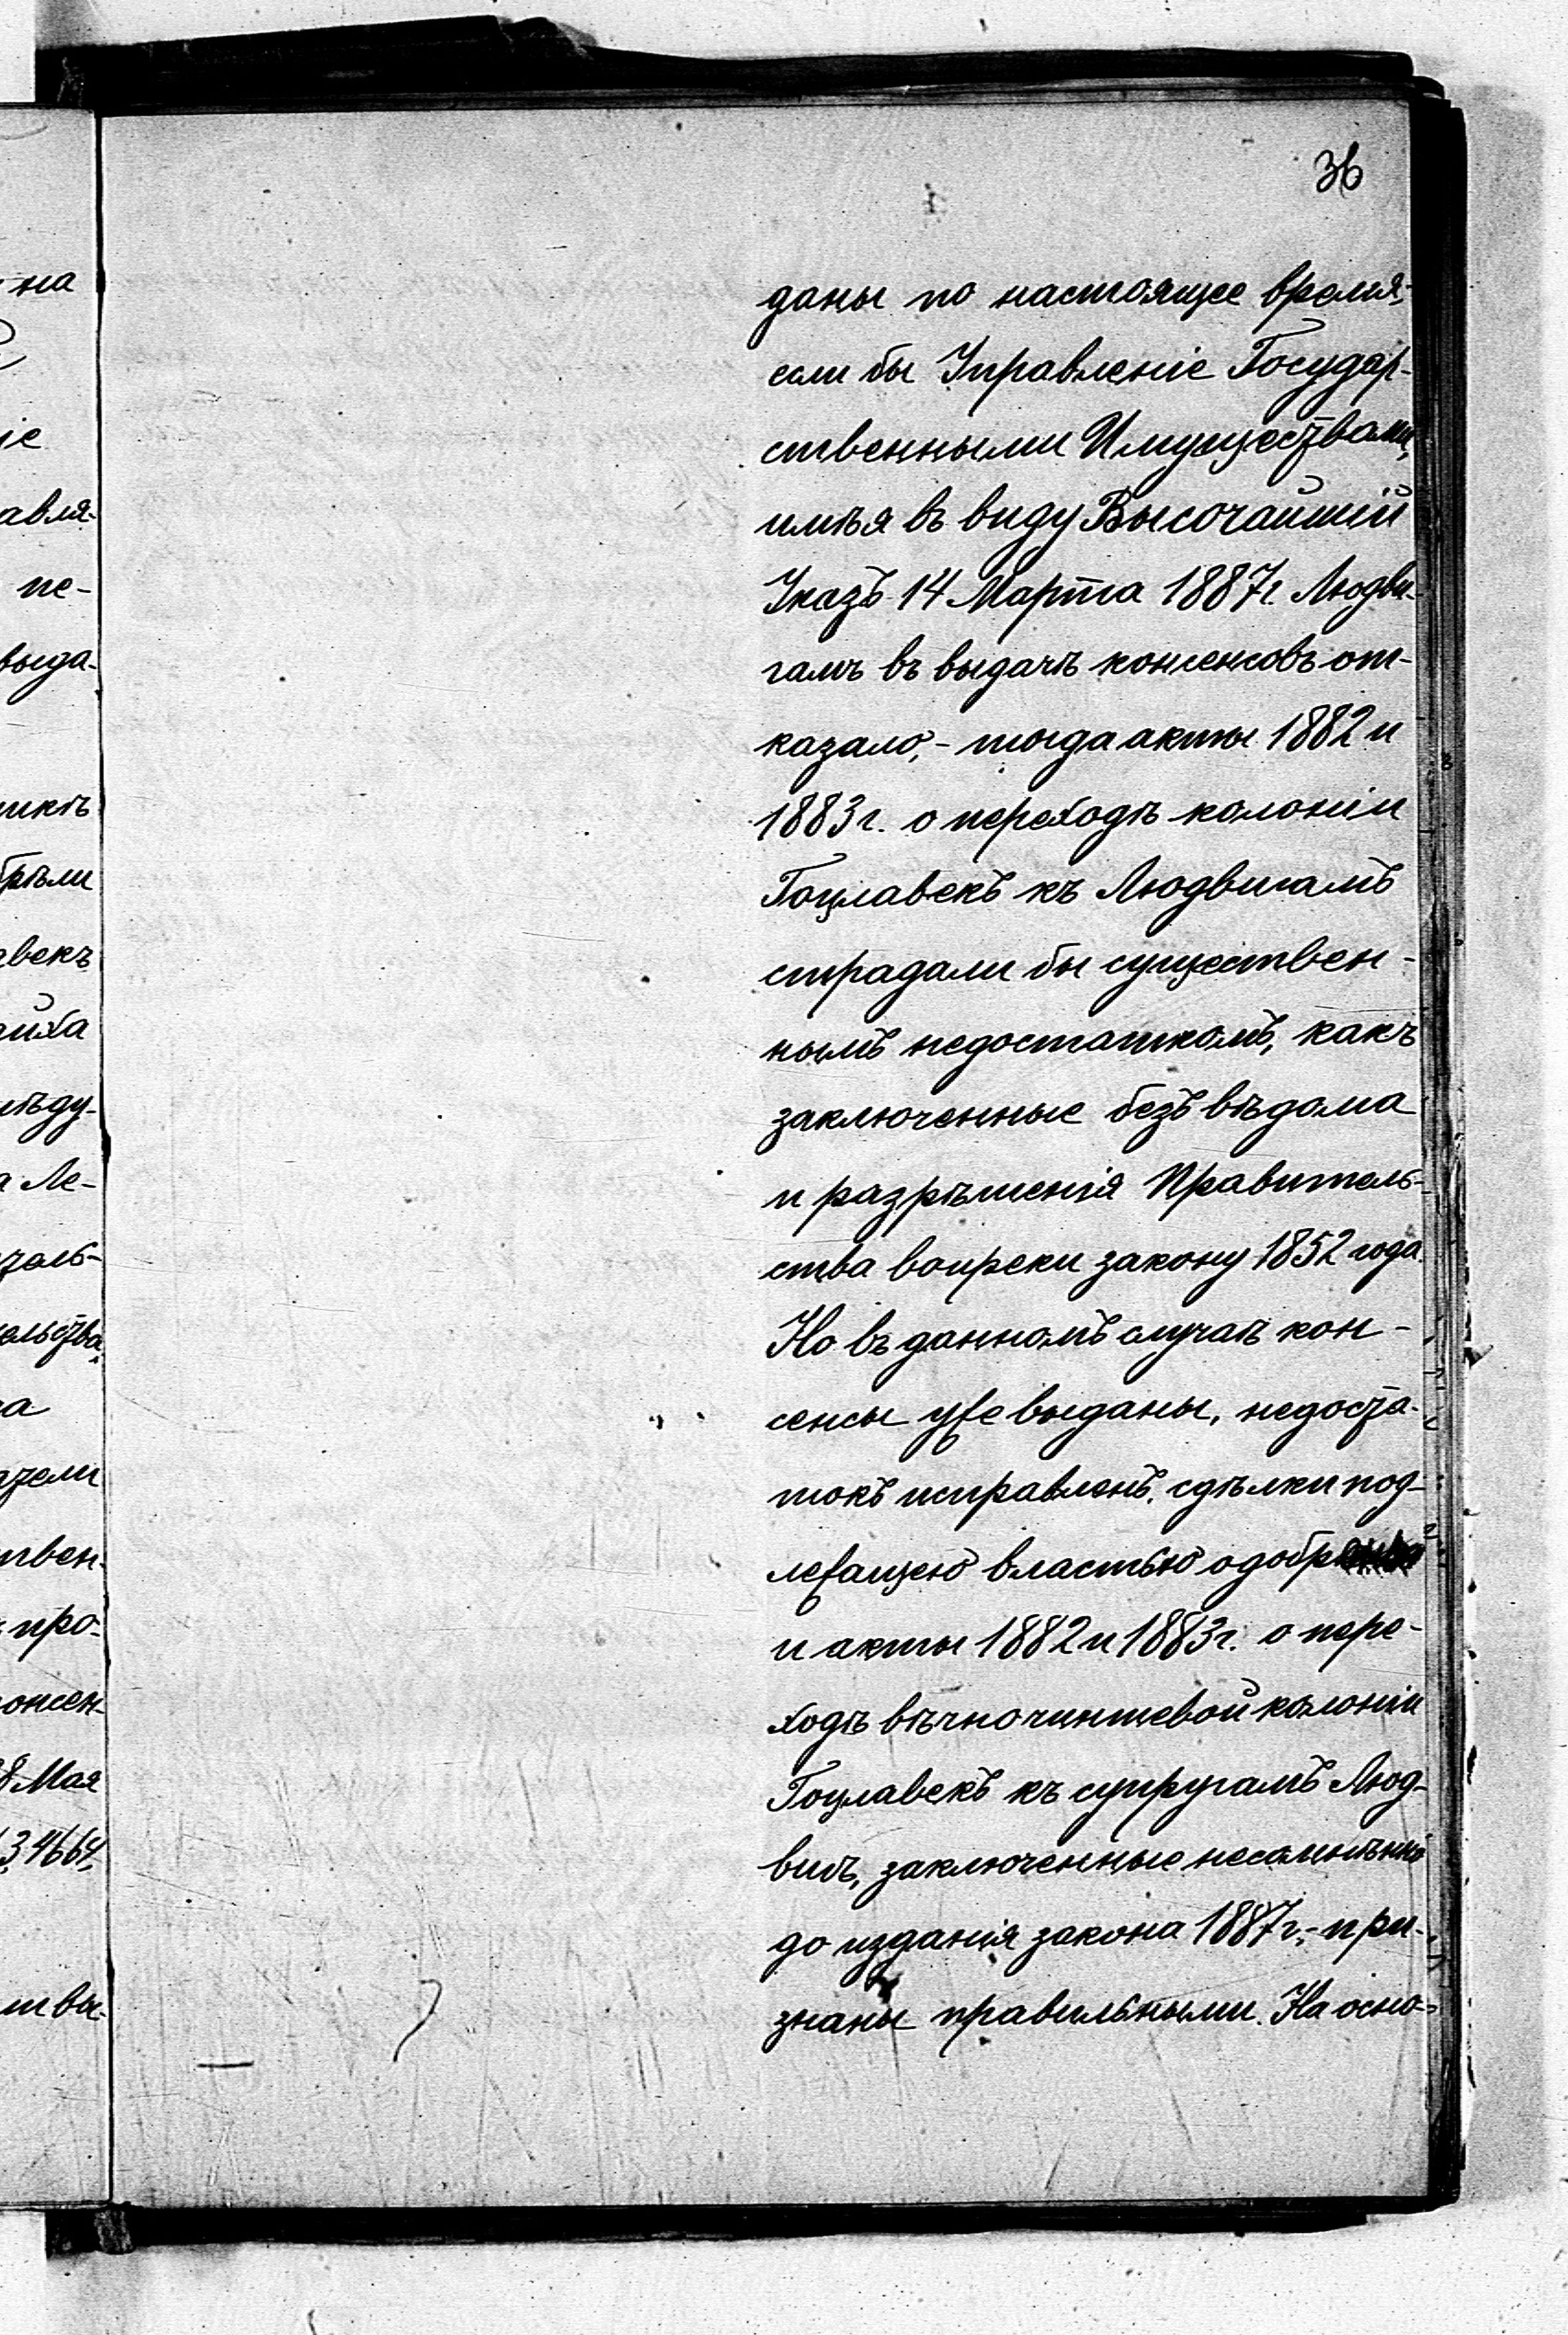 36
даны по настоящее время,
если бы Управленіе Государ-
ственными Имуществами,
имѣя въ виду Высочайшій
Указъ 14 Марта 1887г. Людви-
гамъ въ выдачѣ консенсовъ от-
казало, - тогда акты 1882 и
1883г. о переходѣ колоніи
Гоцлавекъ къ Людвигамъ
страдали бы существен-
нымъ недостаткомъ, какъ
заключенные безъ вѣдома
и разрѣшенія Правитель-
ства вопреки закону 1852 года.
Но въ данномъ случаѣ кон-
сенсы уже выданы, недоста-
токъ исправленъ, сдѣлки под-
лежащею властью одобрены
и акты 1882 и 1883г. о пере-
ходѣ вѣчночиншевой колоніи
Гоцлавекъ къ супругамъ Люд-
вигъ, заключенные несомнѣнно
до изданія закона 1887г. - при-
знаны правильными. На осно-
на
іе
авля-
пе-
выда-
икѣ
брѣли
авекъ
айха
лѣду-
а Ле-
тель-
ельства
а
атели
твен-
про-
онсен-
8 Мая
34664,
твы-